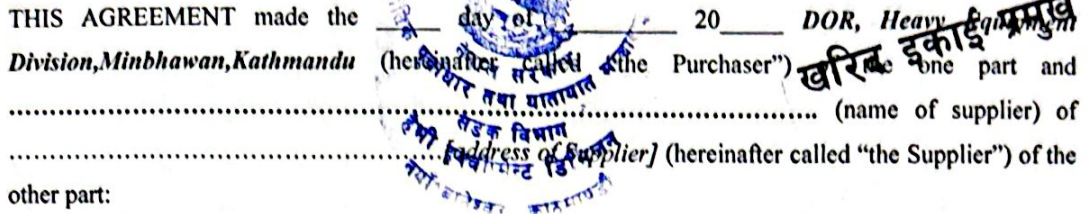 THIS AGREEMENT made the ____ day of ________ 20____ DOR, Heavy Equipment
खरिद इकाई प्रमुख
Division,Minbhawan,Kathmandu (hereinafter called “the Purchaser”) the one part and
.................................................................................. (name of supplier) of
............................................ [address of Supplier] (hereinafter called “the Supplier”) of the
other part:
तथा यातायात
सडक विभाग
हेभी इक्वीपमेन्ट डिभिजन
नयाँ बानेश्वर काठमाण्डौ